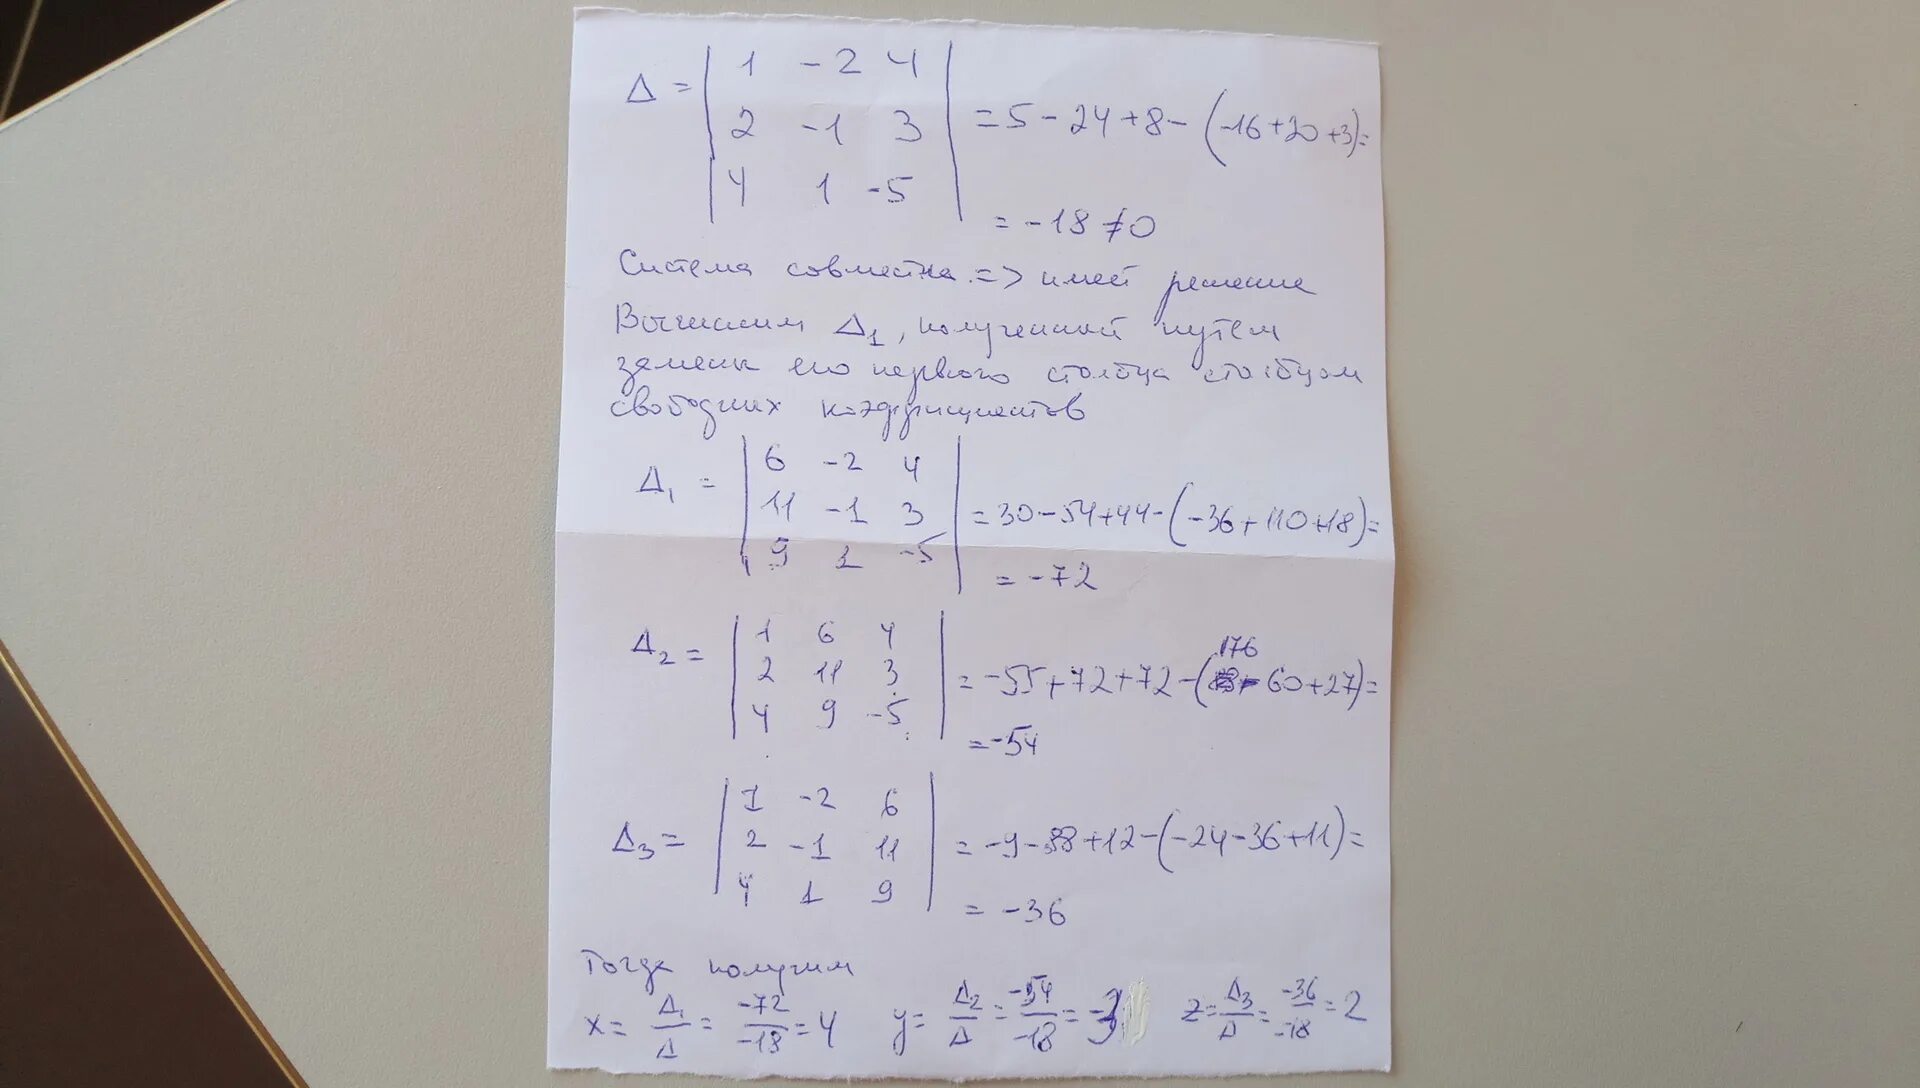 Δ = | 1 -2 4 |
| 2 -1 3 | = 5 - 24 + 8 - (-16 + 20 + 3) =
| 4 1 -5 |
= -18 ≠ 0
Система совместна => имеет решение
Вычислим Δ1, полученный путём
замены его первого столбца столбцом
свободных коэффициентов
Δ1 = | 6 -2 4 |
| 11 -1 3 | = 30 - 54 + 44 - (-36 + 110 + 18) =
| 9 1 -5 |
= -72
Δ2 = | 1 6 4 |
| 2 11 3 | = -55 + 72 + 72 - (176 - 60 + 27) =
| 4 9 -5 |
= -54
Δ3 = | 1 -2 6 |
| 2 -1 11 | = -9 - 88 + 12 - (-24 - 36 + 11) =
| 4 1 9 |
= -36
Тогда получим
x = Δ1/Δ = -72/-18 = 4 y = Δ2/Δ = -54/-18 = 3 z = Δ3/Δ = -36/-18 = 2